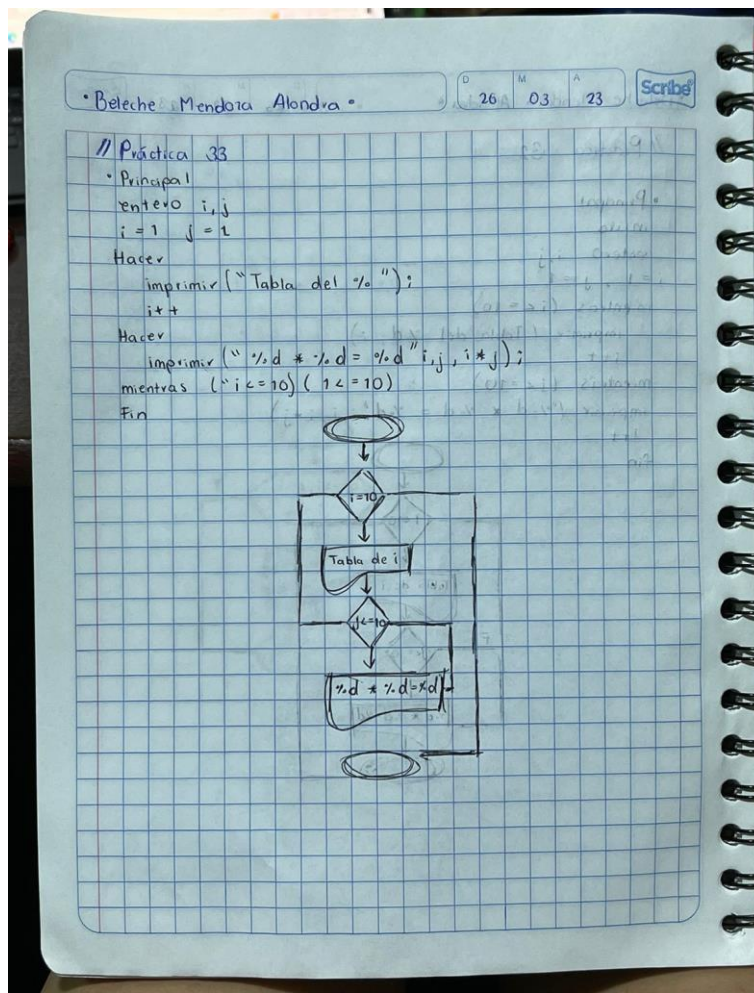 • Beleche Mendoza Alondra •
D M A
26 03 23
Scribe
// Práctica 33
• Principal
entero i, j
i = 1 j = 1
Hacer
imprimir ("Tabla del % ");
i++
Hacer
imprimir (" %d * %d = %d" i, j, i * j);
mientras ("i <= 10) ( 1 <= 10)
Fin
i = 10
Tabla de i
j <= 10
%d * %d = %d